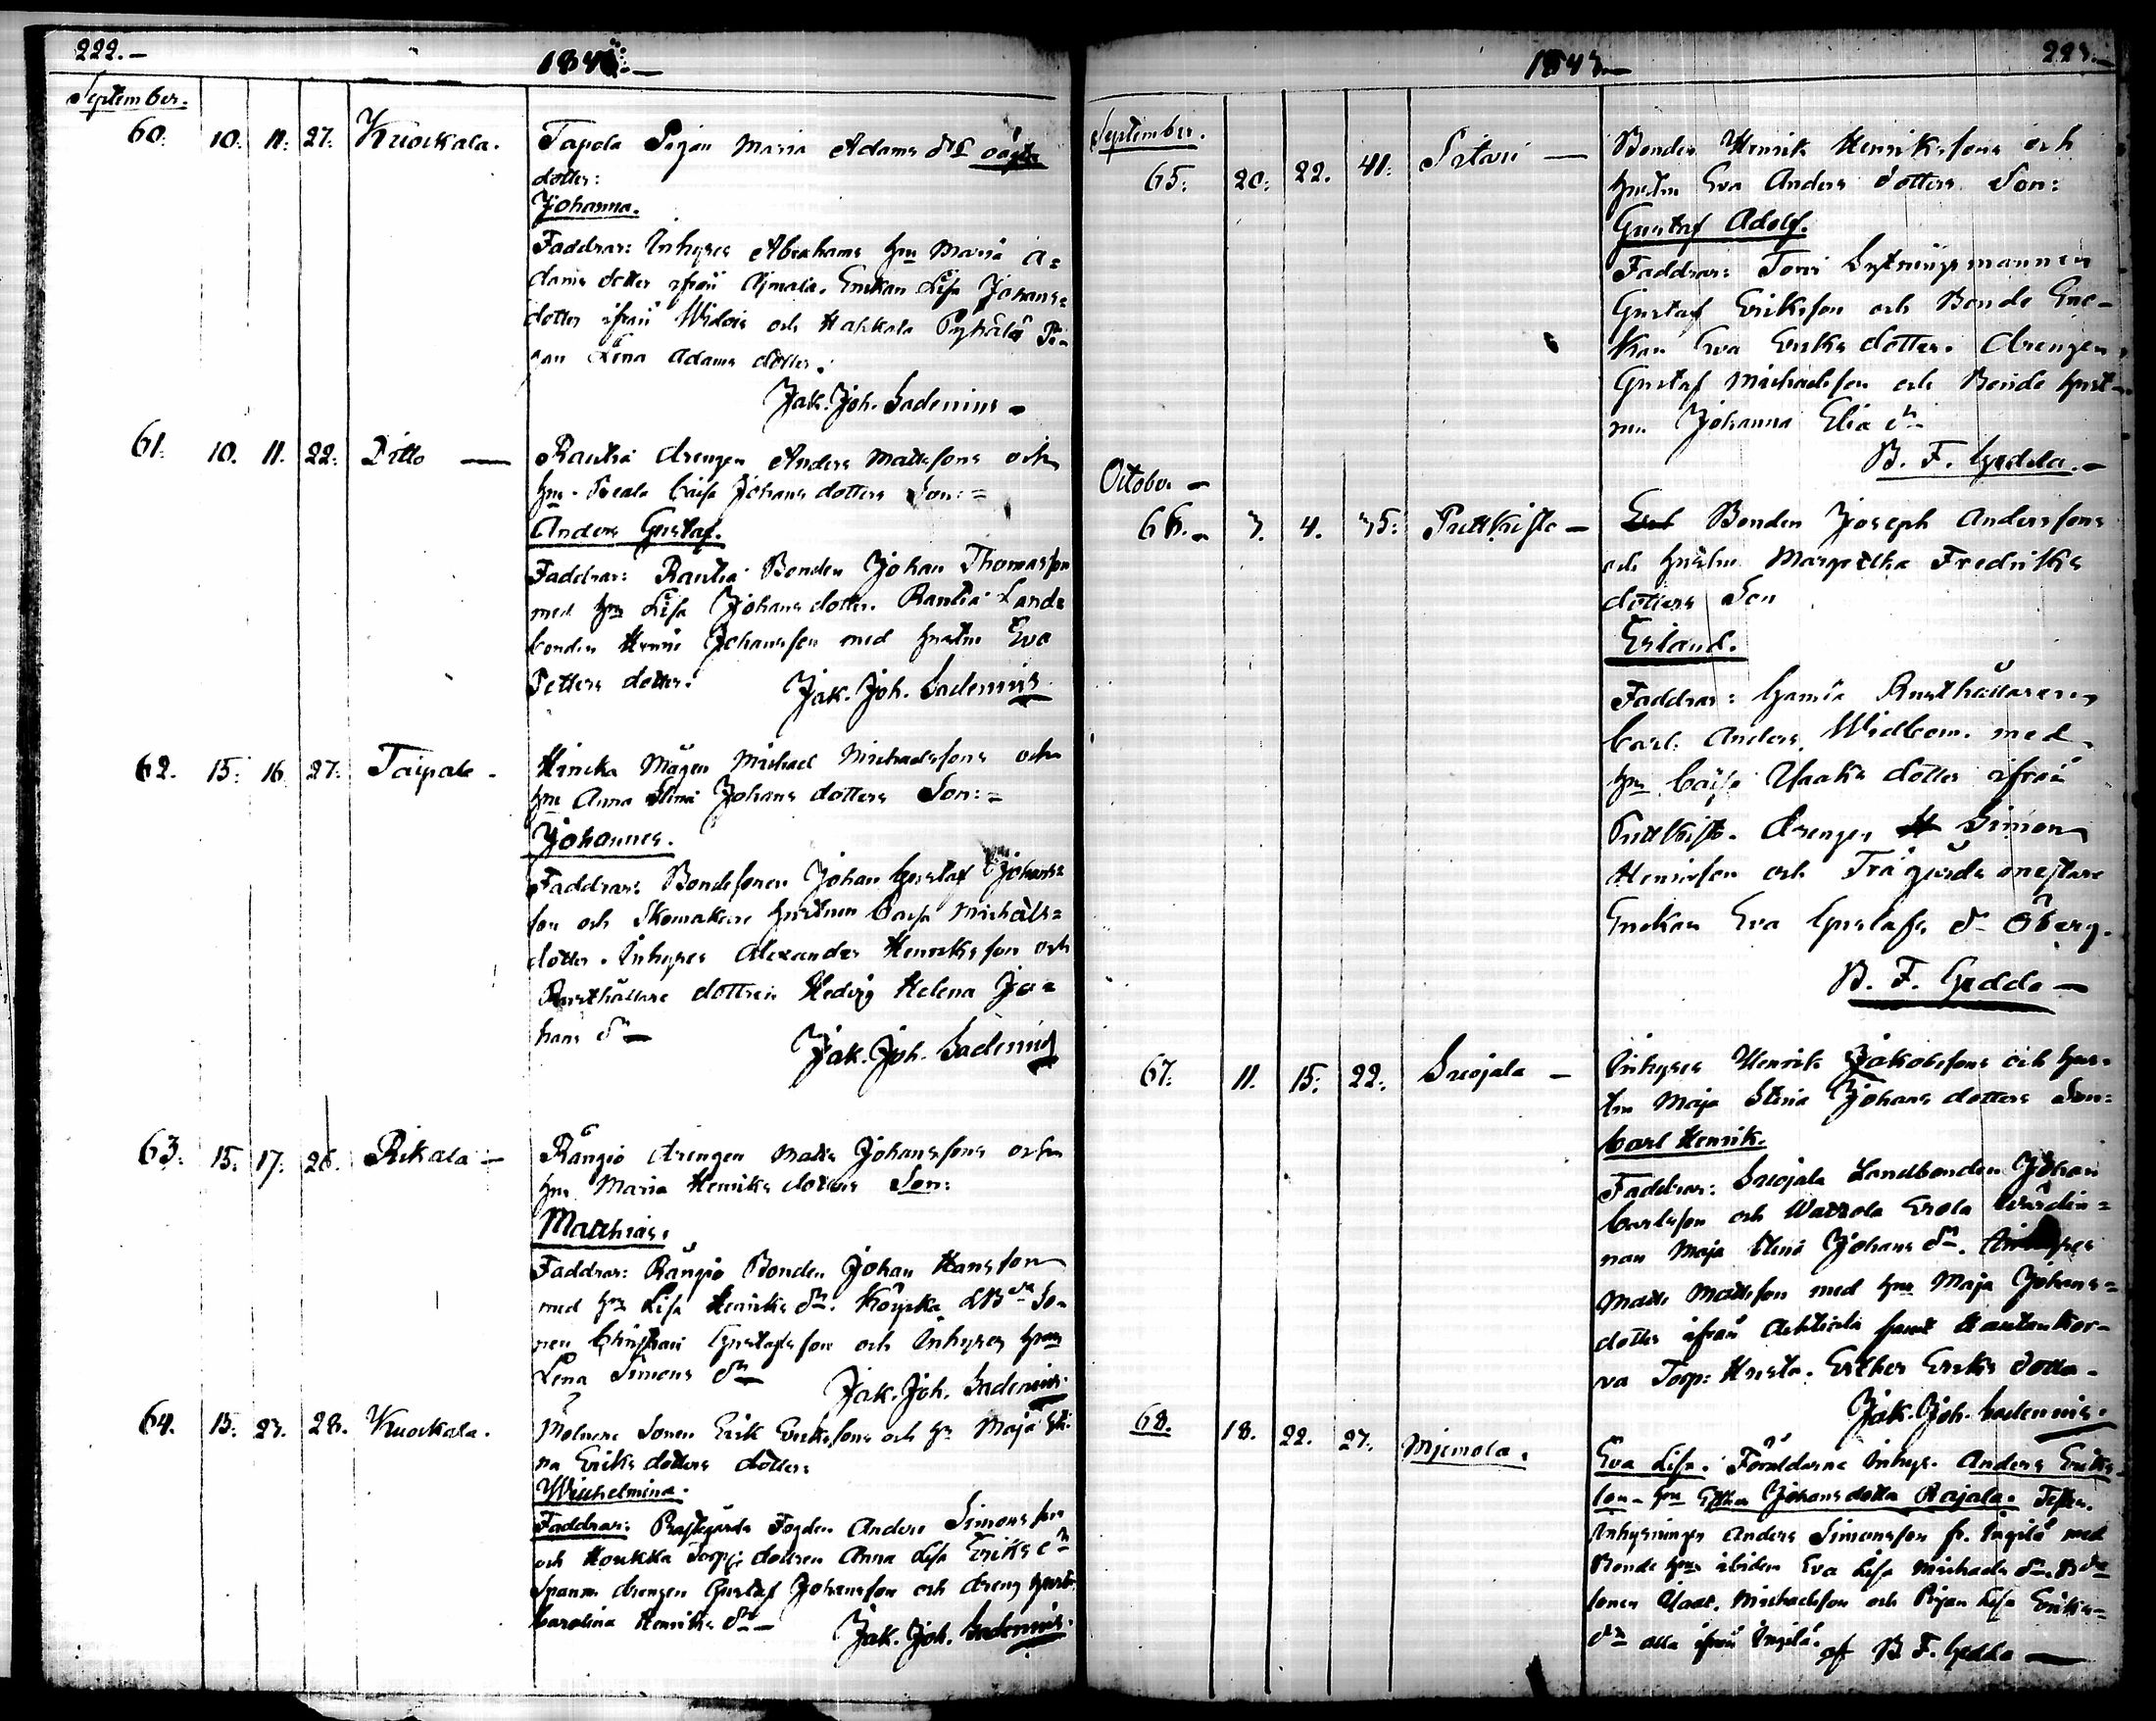 222.-
184
September.
60. 10. 11. 27. Kuockala. Tapola Pigan Maria Adams dr oägta
dotter:
Johanna.
Faddrar: Inhyses Abrahams hu Maria A=
dams dotter ifrån Ajmala. Enkan Lisa Johans=
dotter ifrån och Hakkala Pyhälä Pi-
gan Lena Adams dotter.
Jak. Joh. Sadenius -
61. 10. 11. 22. Ditto — Rautia drengen Anders Mattssons och
hu Caisa Johans dotters Son:=
Anders Gustaf.
Faddrar: Rautia Bonden Johan Thomasson
med hu Lisa Johans dotter. Rautia Land=
bonden Henric Johansson med hustru Eva
Petters dotter. Jak. Joh. Sadenius
62. 15. 16. 27. Taipale - Hincka Mågen Michael Michaelssons och
hu Anna Stina Johans dotters Son:=
Johannes.
Faddrar: Bondesonen Johan Gustaf Johans=
son och Skomakare hustrun Caisa Michaels=
dotter. Inhyses Alexander Henriksson och
Rusthållare dottren Hedvig Helena Jo=
hans dr — Jak. Joh. Sadenius
63. 15. 17. 26. Rikala — Rängiö drengen Matts Johanssons och
hu Maria Henriks dotters Son:
Matthias.
Faddrar: Rängiö Bonden Johan Hansson
med hu Lisa Henriks dr. So-
nen Christian Gustafsson och Inhyses hu
Lena Simons dr Jak. Joh. Sadenius.
64. 15. 27. 28. Kuockala. Molnare Sonen Erik Erikssons och hu Maja Sti-
na Eriks dotters dotter:
Wilhelmina.
Faddrar: Prästgårds Fogden Anders Simonsson
och Houkka Torp: dottren Anna Lisa Eriks dr
Spanm. drengen Gustaf Johansson och dreng hustr.
Carolina Henriks dr — Jak. Joh. Sadenius.
1843 —
223.-
September.
65. 20. 22. 41. — Bonden Henrik Henrikssons och
hustru Eva Anders dotters Son:
Gustaf Adolf.
Faddrar: Toni Sytningsmannen
Gustaf Eriksson och Bonde Enc-
kan Eva Eriks dotter. drengen
Gustaf Michaelsson och Bonde hust-
run Johanna Elia dr
B. F. Gedda. -
October —
66. 3. 4. 35. Puttkisto — Bonden Joseph Anderssons
och hustru Margretha Fredriks
dotters Son
Erland.
Faddrar: Gamla Rusthållaren
Carl Anders Widbom. med
hu Caisa Isaaks dotter ifrån
Puttkisto. drengen Simon
Henricsson och Trägårds mestare
Enckan Eva Gustafs dr Öberg.
B. F. Gedda —
67. 11. 15. 22. Sucojala — Inhyses Henrik Jakobssons och hus-
tru Maja Stina Johans dotters Son:
Carl Henrik.
Faddrar: Sucojala Landbonden Johan
Carlsson och Wattola Erola Wärdin=
nan Maja Stina Johans dr. Inhyses
Matts Mattsson med hu Maja Johans=
dotter ifrån Ahtiala samt Hautankor-
va Torp: Hustr. Esther Eriks dotter -
Jak. Joh. Sadenius.
68. 18. 22. 27. Mjemola. Eva Lisa. Föräldarne Inhys. Anders Eriks-
son - hu Esther Johansdotter Rajala. Testes.
Inhysningen Anders Simonsson fr. Ingilä med
Bonde hu ibidem Eva Lisa Michaels dr. Bde
sonen Isaac. Michaelsson och Pigan Lisa Eriks=
dr alla ifrån Ingilä. af B. F. Gedda —